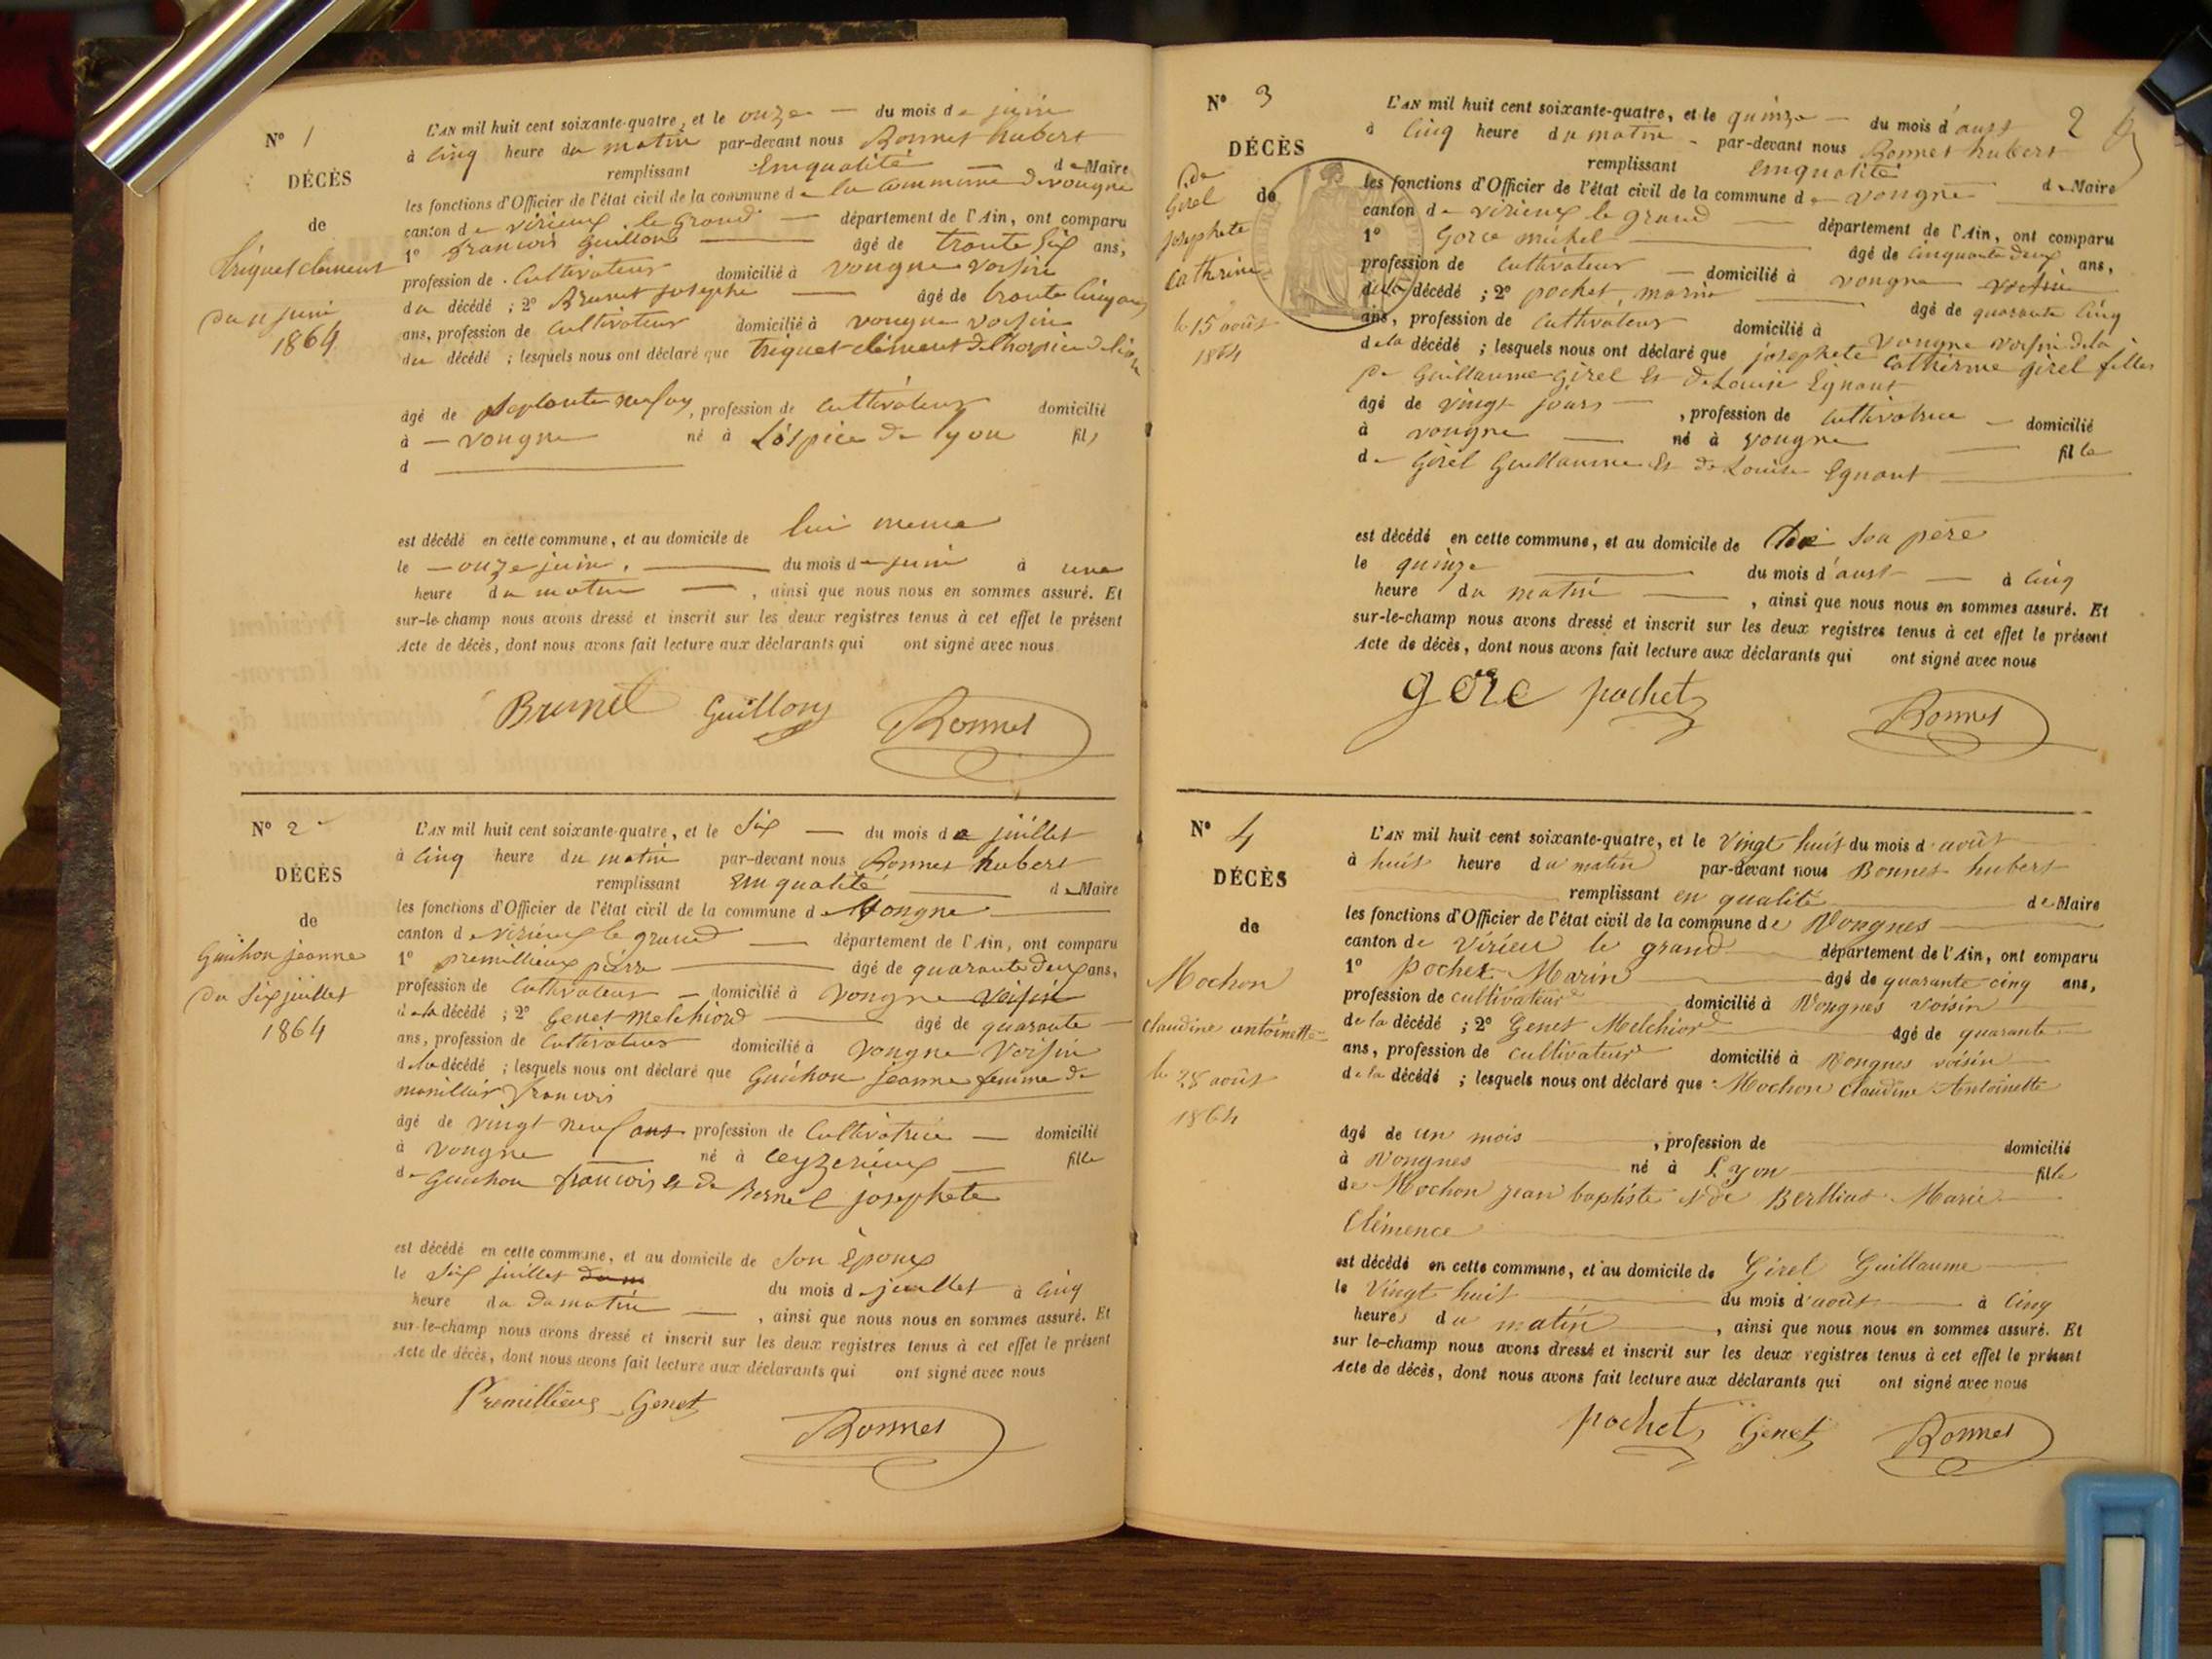 N° 1
DÉCÈS
de
Triquet clement
du 11 juin
1864
L'AN mil huit cent soixante-quatre, et le onze du mois de juin
à cinq heure du matin par-devant nous Bonnet hubert
remplissant Enqualité de Maire
les fonctions d'Officier de l'état civil de la commune de la commune de vongne
canton de virieux le grand département de l'Ain, ont comparu
1° francois Guillon âgé de trante six ans,
profession de Cultivateur domicilié à vongne voisin
du décédé ; 2° Brunet josephe âgé de trante cinq ans
ans, profession de Cultivateur domicilié à vongne voisin
du décédé ; lesquels nous ont déclaré que triquet clément de lhospice de
âgé de septante neuf, profession de cultivateur domicilié
à vongne né à L'óspice de lyon fils
d
est décédé en cette commune, et au domicile de lui meme
le onze juin. du mois de juin à une
heure du matin, ainsi que nous nous en sommes assuré. Et
sur-le-champ nous avons dressé et inscrit sur les deux registres tenus à cet effet le présent
Acte de décès, dont nous avons fait lecture aux déclarants qui ont signé avec nous
Brunet Guillon Bonnet
N° 2
DÉCÈS
de
Guichon jeanne
du six juillet
1864
L'AN mil huit cent soixante-quatre, et le six du mois de juillet
à cinq heure du matin par-devant nous Bonnet hubert
remplissant Enqualité de Maire
les fonctions d'Officier de l'état civil de la commune de Vongne
canton de virieux le grand département de l'Ain, ont comparu
1° premillieux pierre âgé de quarante deux ans,
profession de Cultivateur domicilié à vongne voisin
de la décédé ; 2° Genet Melchiord âgé de quarante
ans, profession de Cultivateur domicilié à vongne voisin
de la décédé ; lesquels nous ont déclaré que Guichon jeanne femme de
francois
âgé de vingt neuf ans profession de Cultivatrice domicilié
à vongne né à Ceyzerieux fille
de Guichon francois et de Bornel josephete
est décédé en cette commune, et au domicile de son Époux
le six juillet du mois de juillet à cinq
heure du du matin, ainsi que nous nous en sommes assuré. Et
sur-le-champ nous avons dressé et inscrit sur les deux registres tenus à cet effet le présent
Acte de décès, dont nous avons fait lecture aux déclarants qui ont signé avec nous
Premillieux Genet
Bonnet
N° 3
2
DÉCÈS
de
de
Girel
josephete
Catherine
le 15 août
1864
L'AN mil huit cent soixante-quatre, et le quinze du mois d'aust
à cinq heure du matin par-devant nous Bonnet hubert
remplissant Enqualité de Maire
les fonctions d'Officier de l'état civil de la commune de vongne
canton de virieux le grand département de l'Ain, ont comparu
1° Gorce michel âgé de cinquante deux ans,
profession de Cultivateur domicilié à vongne voisin
de la décédé ; 2° pochet, marin âgé de quarante cinq
ans, profession de Cultivateur domicilié à vongne voisin de la
de la décédé ; lesquels nous ont déclaré que josephete Catherine girel filles
de Guillaume Girel et de Louise Egnant
âgé de vingt jours, profession de Cultivatrice domicilié
à vongne né à vongne fille
de Girel Guillaume et de Louise Egnant
est décédé en cette commune, et au domicile de son père
le quinze du mois d'aust à cinq
heure du matin, ainsi que nous nous en sommes assuré. Et
sur-le-champ nous avons dressé et inscrit sur les deux registres tenus à cet effet le présent
Acte de décès, dont nous avons fait lecture aux déclarants qui ont signé avec nous
gorc pochet Bonnet
N° 4
DÉCÈS
de
Mochon
Claudine antoinette
le 28 août
1864
L'AN mil huit cent soixante-quatre, et le vingt huit du mois d'août
à huit heure du matin par-devant nous Bonnet hubert
remplissant en qualité de Maire
les fonctions d'Officier de l'état civil de la commune de Vongnes
canton de Virieu le grand département de l'Ain, ont comparu
1° Pochet Marin âgé de quarante cinq ans,
profession de cultivateur domicilié à Vongnes voisin
de la décédé ; 2° Genet Melchior âgé de quarante
ans, profession de cultivateur domicilié à Vongnes voisin
de la décédé ; lesquels nous ont déclaré que Mochon Claudine Antoinette
âgé de un mois, profession de domicilié
à Vongnes né à Lyon fille
de Mochon jean baptiste et de Berllias Marie
Clémence
est décédé en cette commune, et au domicile de Girel Guillaume
le Vingt huit du mois d'août à cinq
heures du matin, ainsi que nous nous en sommes assuré. Et
sur le-champ nous avons dressé et inscrit sur les deux registres tenus à cet effet le présent
Acte de décès, dont nous avons fait lecture aux déclarants qui ont signé avec nous
pochet Genet Bonnet